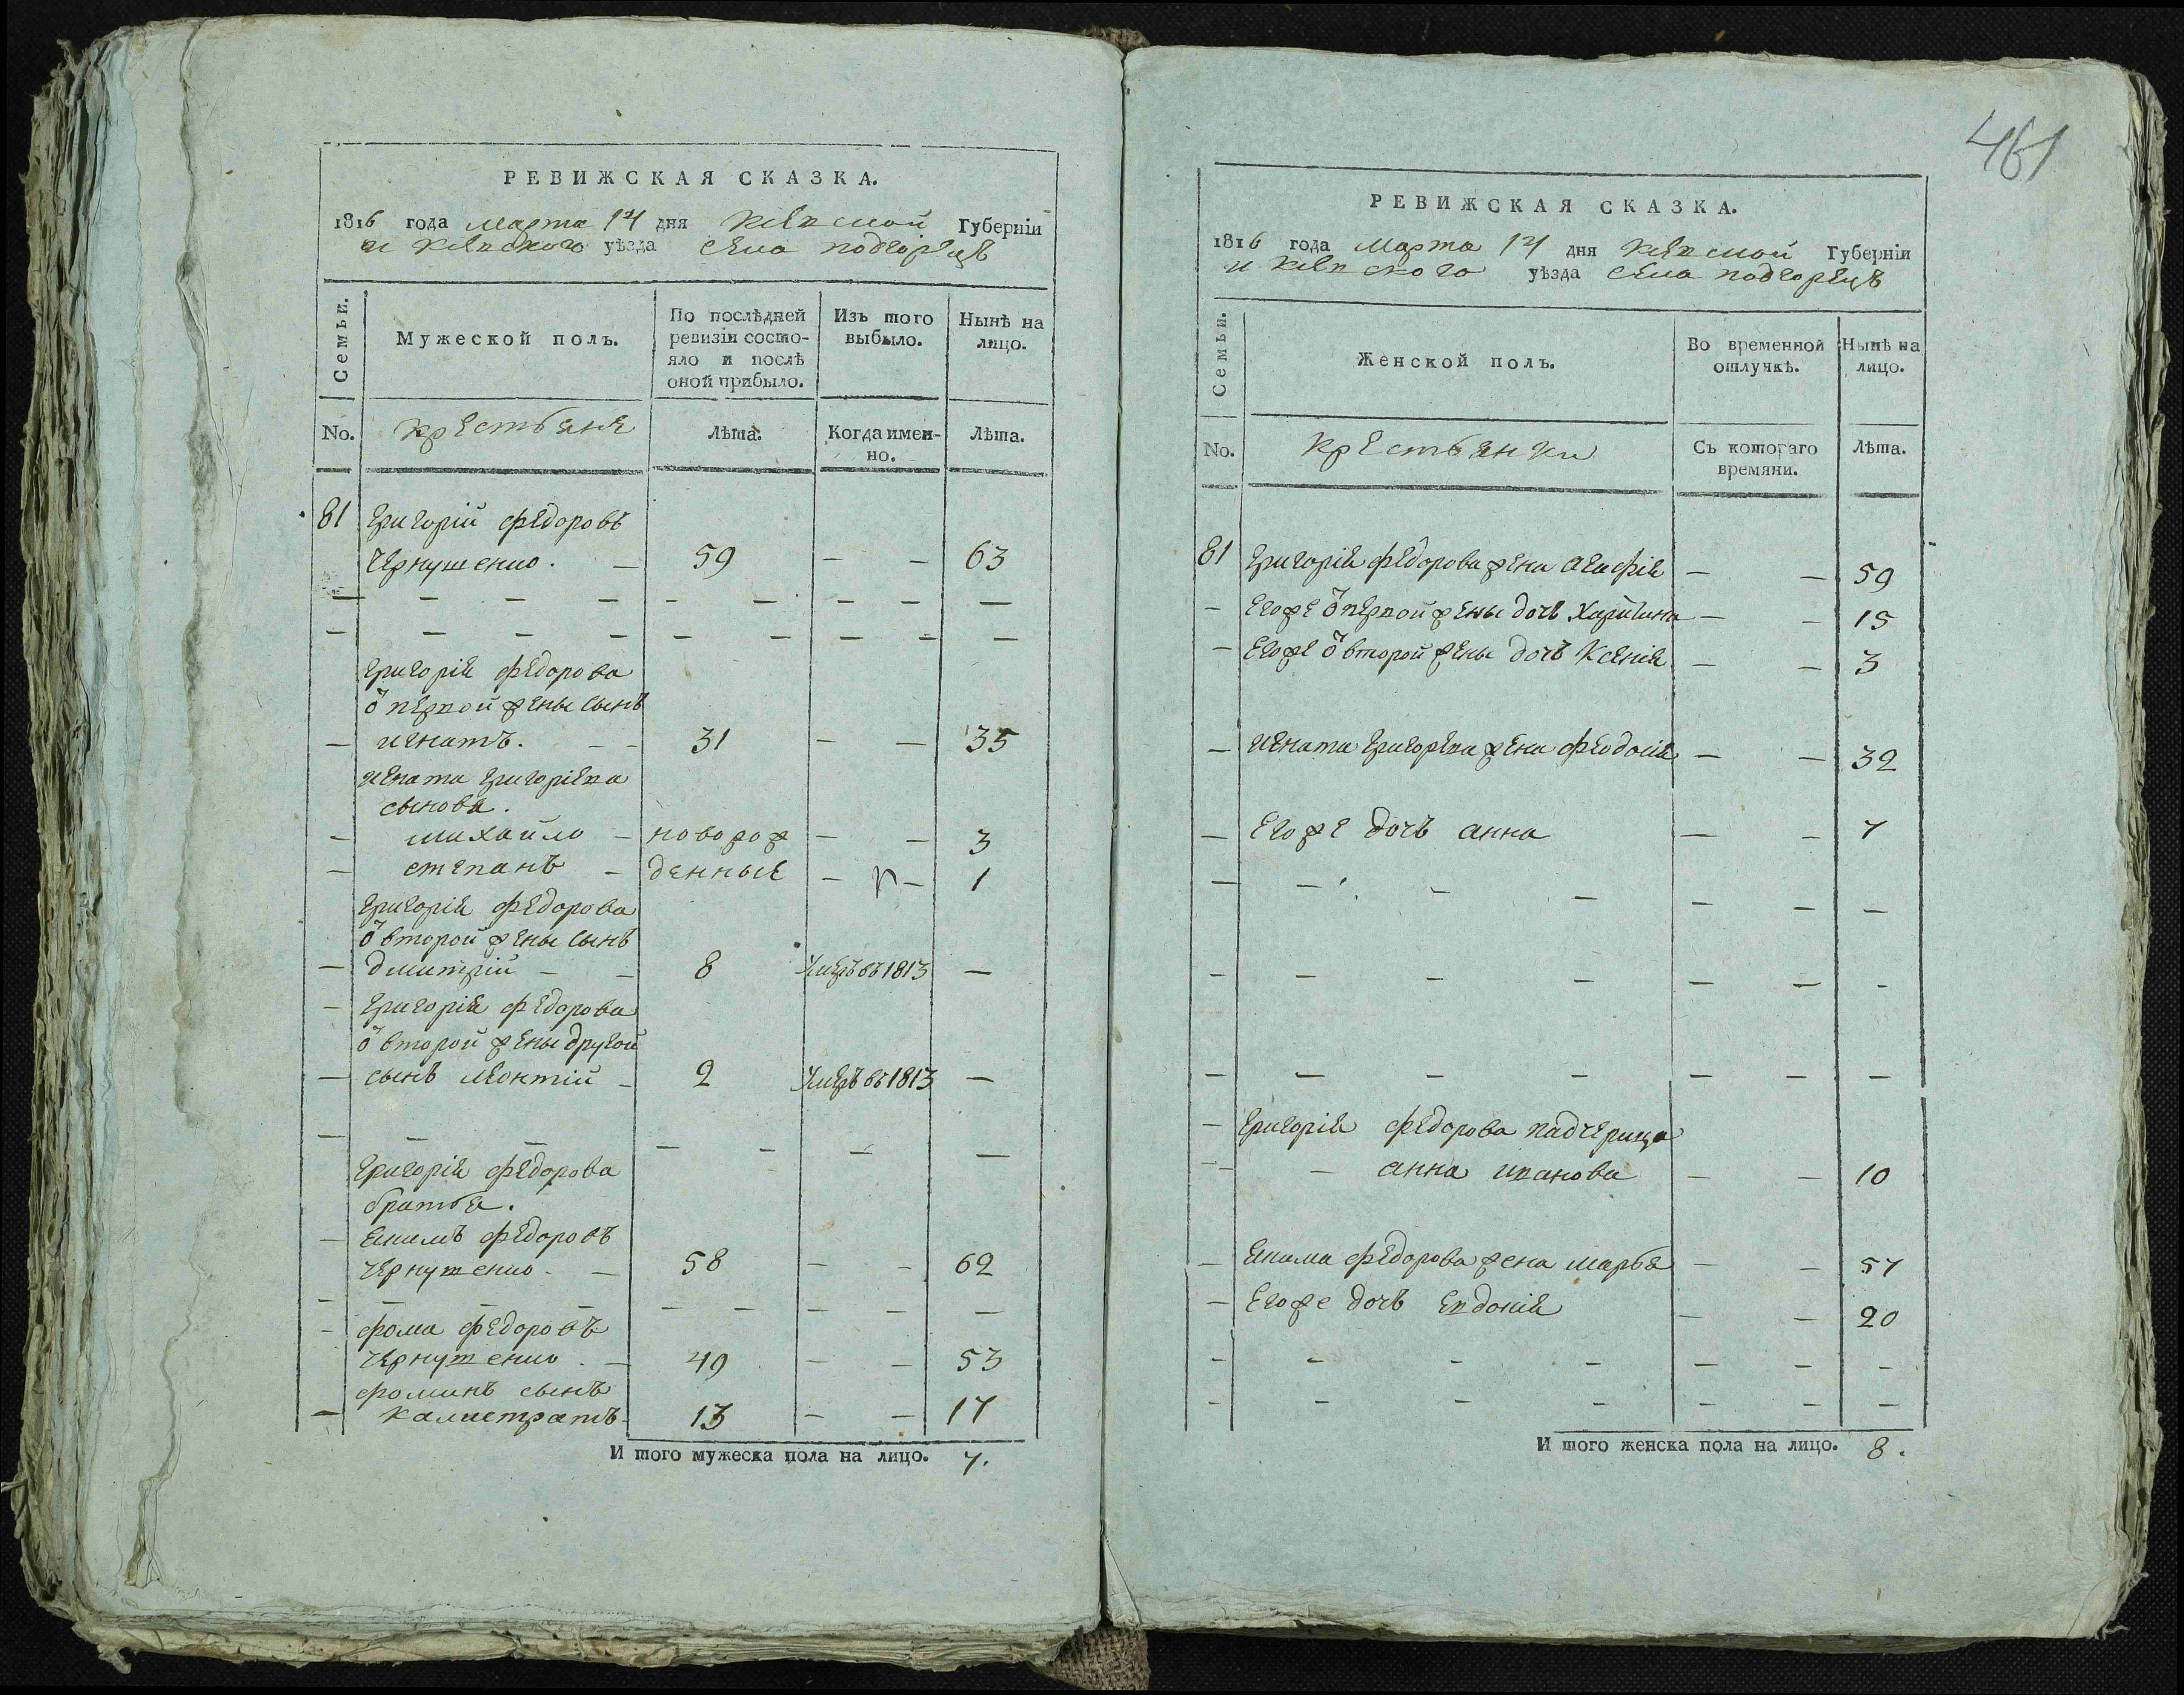 РЕВИЖСКАЯ СКАЗКА.
1816 года марта 14 дня Кіевской Губерніи
и Кіевского уѣзда села подгорецъ
Семьи.
Мужеской полъ.
По послѣдней ревизіи состояло и послѣ оной прибыло.
Изъ того выбыло.
Нынѣ на лицо.
No.
крестьяне
Лѣта.
Когда именно.
Лѣта.
81 григорій федоровъ
чернушенко. — 59 — — 63
григорія федорова
ѿ первой жены сынъ
— игнатъ. — — 31 — — 35
игната григоріева
сыновя.
— михайло — новорож — — 3
— степанъ — денные — — 1
григорія федорова
ѿ второй жены сынъ
— дмитрій — — 8 умеръ въ 1813 —
— григорія федорова
ѿ второй жены другой
— сынъ леонтій — 2 умеръ въ 1813 —
григорія федорова
братья.
— екимъ федоровъ
чернушенко. — 58 — — 62
— фома федоровъ
чернушенко. — 49 — — 53
фоминъ сынъ
— калистратъ — 13 — — 17
И того мужеска пола на лицо. 7.
461
РЕВИЖСКАЯ СКАЗКА.
1816 года марта 14 дня Кіевской Губерніи
и Кіевского уѣзда села подгорецъ
Семьи.
Женской полъ.
Во временной отлучкѣ.
Нынѣ на лицо.
No.
крестьянки
Съ котораго времяни.
Лѣта.
81 григорія федорова жена агафія — — 59
— егоже ѿ первой жены дочь харитина — — 15
— егоже ѿ второй жены дочъ Ксенія — — 3
— игната григорева жена феодосія — — 32
— егоже дочъ анна — — 7
— григорія федорова падчерица
— анна иванова — — 10
— екима федорова жена марья — — 57
— егоже дочъ евдокія — — 20
И того женска пола на лицо. 8.